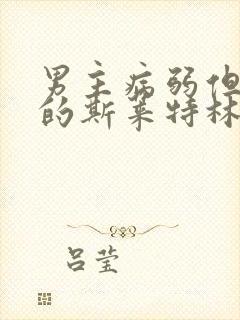 男主病弱但
的斯莱特林
吕莹